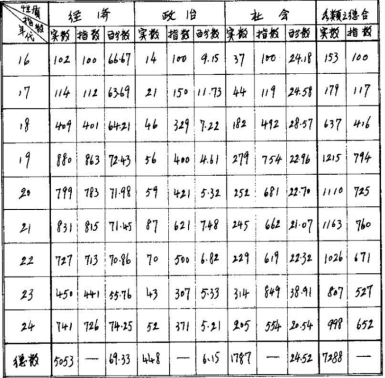 性质 指数 年代 | 经济 | 政治 | 社会 | 各类之总合
实数 指数 百分数 实数 指数 百分数 实数 指数 百分数 实数 指数
16 102 100 66.67 14 100 9.15 37 100 24.18 153 100
17 114 112 63.69 21 150 11.73 44 119 24.58 179 117
18 409 401 64.21 46 329 7.22 182 492 28.57 637 416
19 880 863 72.43 56 400 4.61 279 754 22.96 1215 794
20 799 783 71.98 59 421 5.32 252 681 22.70 1110 725
21 831 815 71.45 87 621 7.48 245 662 21.07 1163 760
22 727 713 70.86 70 500 6.82 229 619 22.32 1026 671
23 450 441 55.76 43 307 5.33 314 849 38.91 807 527
24 741 726 74.25 52 371 5.21 205 554 20.54 998 652
总数 5053 — 69.33 448 — 6.15 1787 — 24.52 7288 —